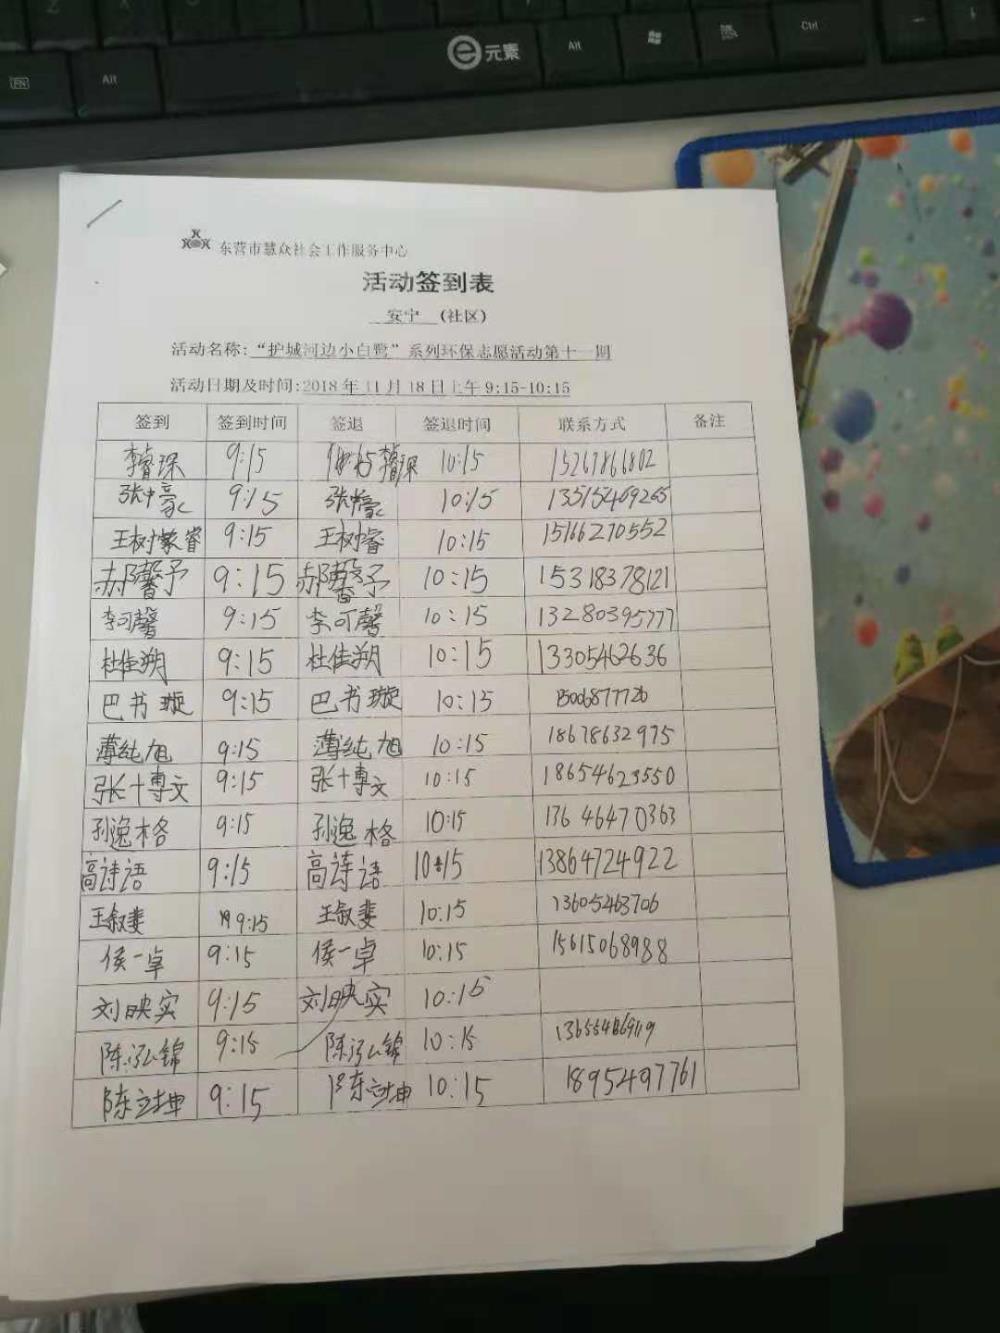 FN
Alt
e元素
Alt
Ctrl
东营市慧众社会工作服务中心
活动签到表
安宁 (社区)
活动名称:“护城河边小白鹭”系列环保志愿活动第十一期
活动日期及时间:2018年11月18日上午9:15-10:15
签到 签到时间 签退 签退时间 联系方式 备注
李睿琛 9:15 李睿琛 10:15 15267866802
张中豪 9:15 张中豪 10:15 13515469265
王树睿 9:15 王树睿 10:15 15166270552
郝馨予 9:15 郝馨予 10:15 15318378121
李可馨 9:15 李可馨 10:15 13280395777
杜佳朔 9:15 杜佳朔 10:15 13305462636
巴书璇 9:15 巴书璇 10:15 15006877726
薄纯旭 9:15 薄纯旭 10:15 18678632975
张博文 9:15 张博文 10:15 18654623550
孙逸格 9:15 孙逸格 10:15 13646470363
高诗语 9:15 高诗语 10:15 13864724922
王叙斐 9:15 王叙斐 10:15 13605463706
侯一卓 9:15 侯一卓 10:15 15615068988
刘映实 9:15 刘映实 10:15
陈泓锦 9:15 陈泓锦 10:15
陈立坤 9:15 陈立坤 10:15 1895497761